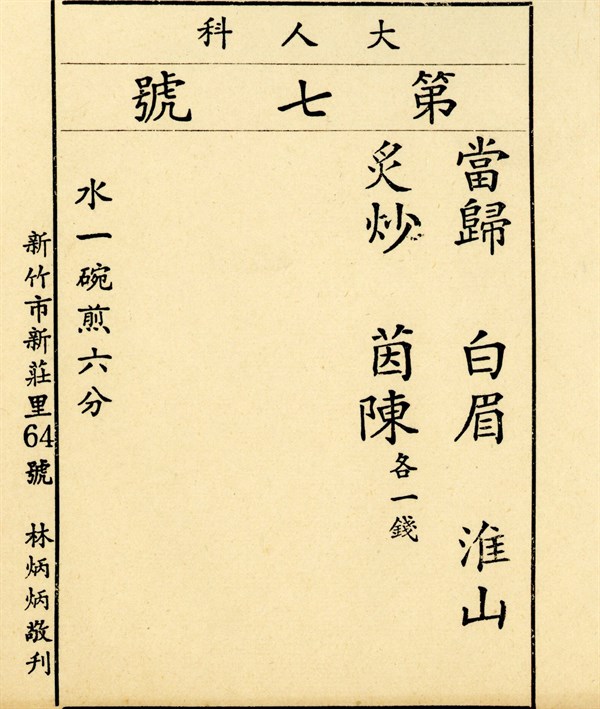 大人科
第七號
當歸 白眉 淮山
炙炒 茵陳各一錢
水一碗煎六分
新竹市新莊里64號 林炳炳敬刊